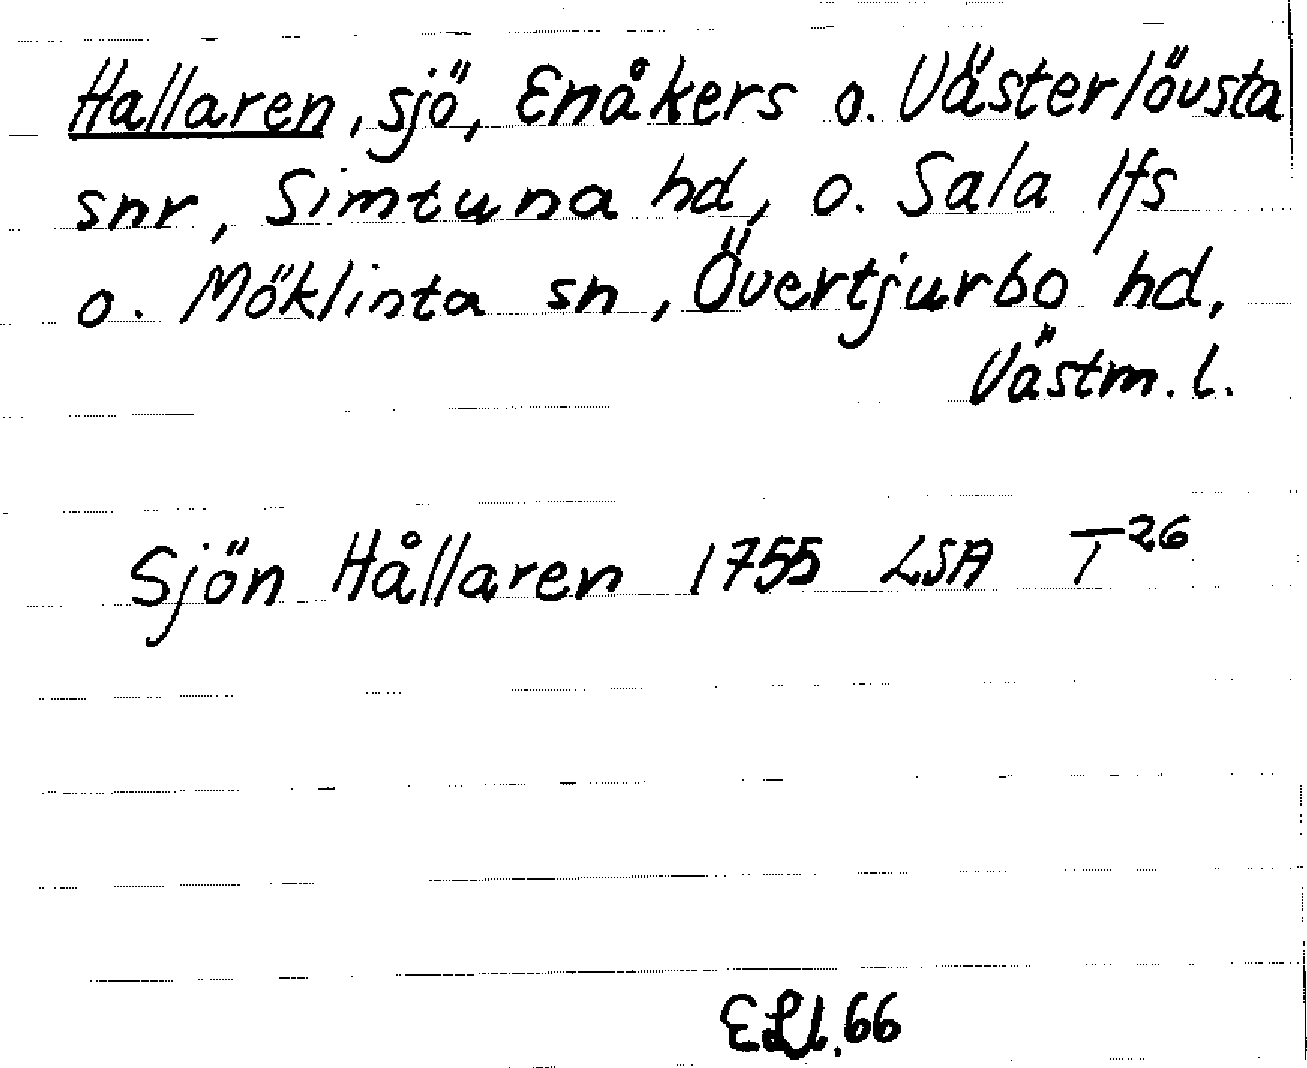 Hallaren, sjö, Enåkers o. Västerlövsta
snr, Simtuna hd, o. Sala lfs
o. Möklinta sn, Övertjurbo hd,
Västm. l.
Sjön Hållaren 1755 LSA T 26
66